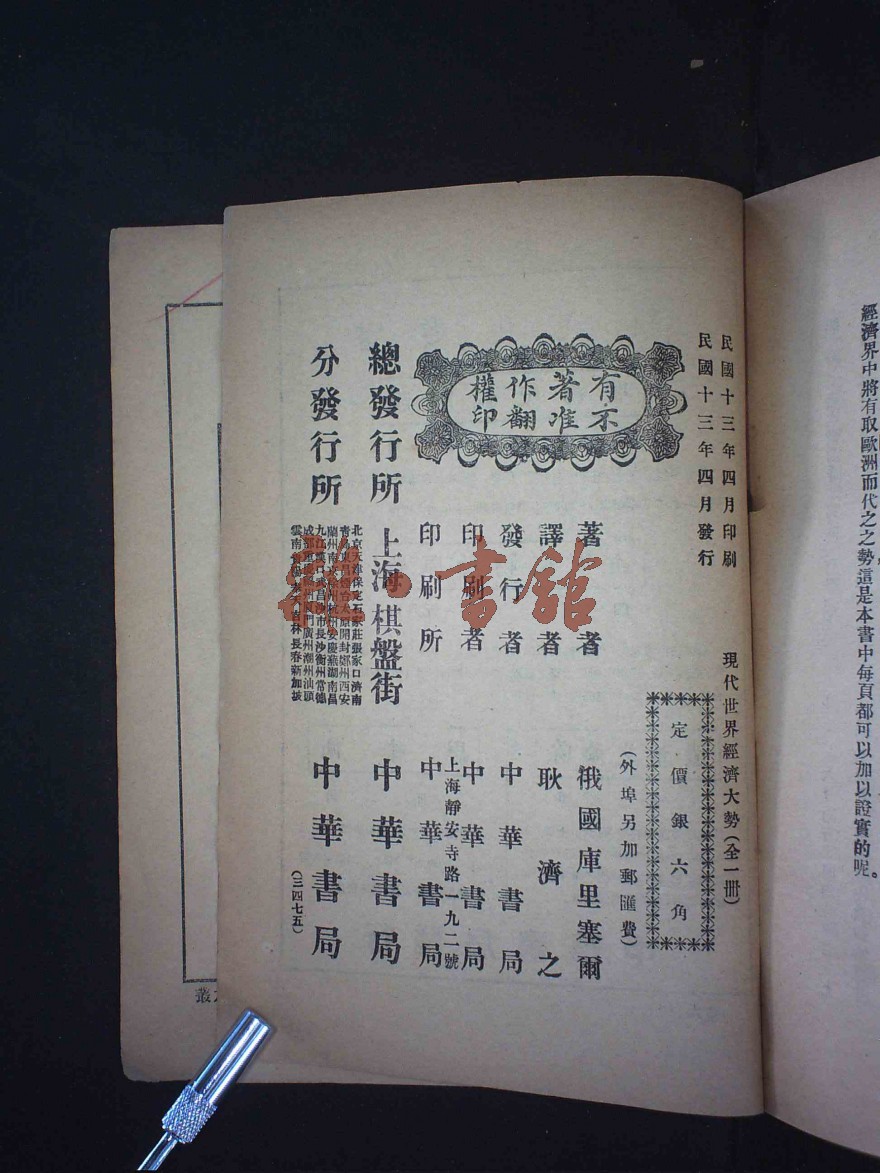 民國十三年四月印刷
民國十三年四月發行
現代世界經濟大勢(全一册)
定價銀六角
(外埠另加郵匯費)
有著作權
不准翻印
著者 俄國庫里塞爾
譯者 耿濟之
發行者 中華書局
印刷者 中華書局
上海靜安寺路一九二號
印刷所 中華書局
總發行所 上海棋盤街 中華書局
分發行所
北京天津保定石家莊張家口濟南
青島東昌煙台太原開封鄭州西安
蘭州南京徐州杭州安慶蕪湖南昌
九江漢口武昌沙市長沙衡州常德
成都重慶福州廈門廣州潮州汕頭
雲南奉天吉林長春新加坡
中華書局
(三四七五)
經濟界中將有取歐洲而代之之勢這是本書中每頁都可以加以證實的呢。
叢
書館